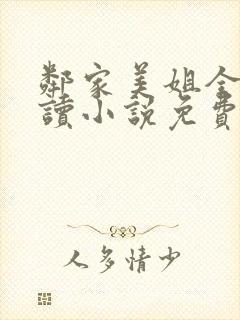 鄰家美姐全
讀小說免費
人多情少